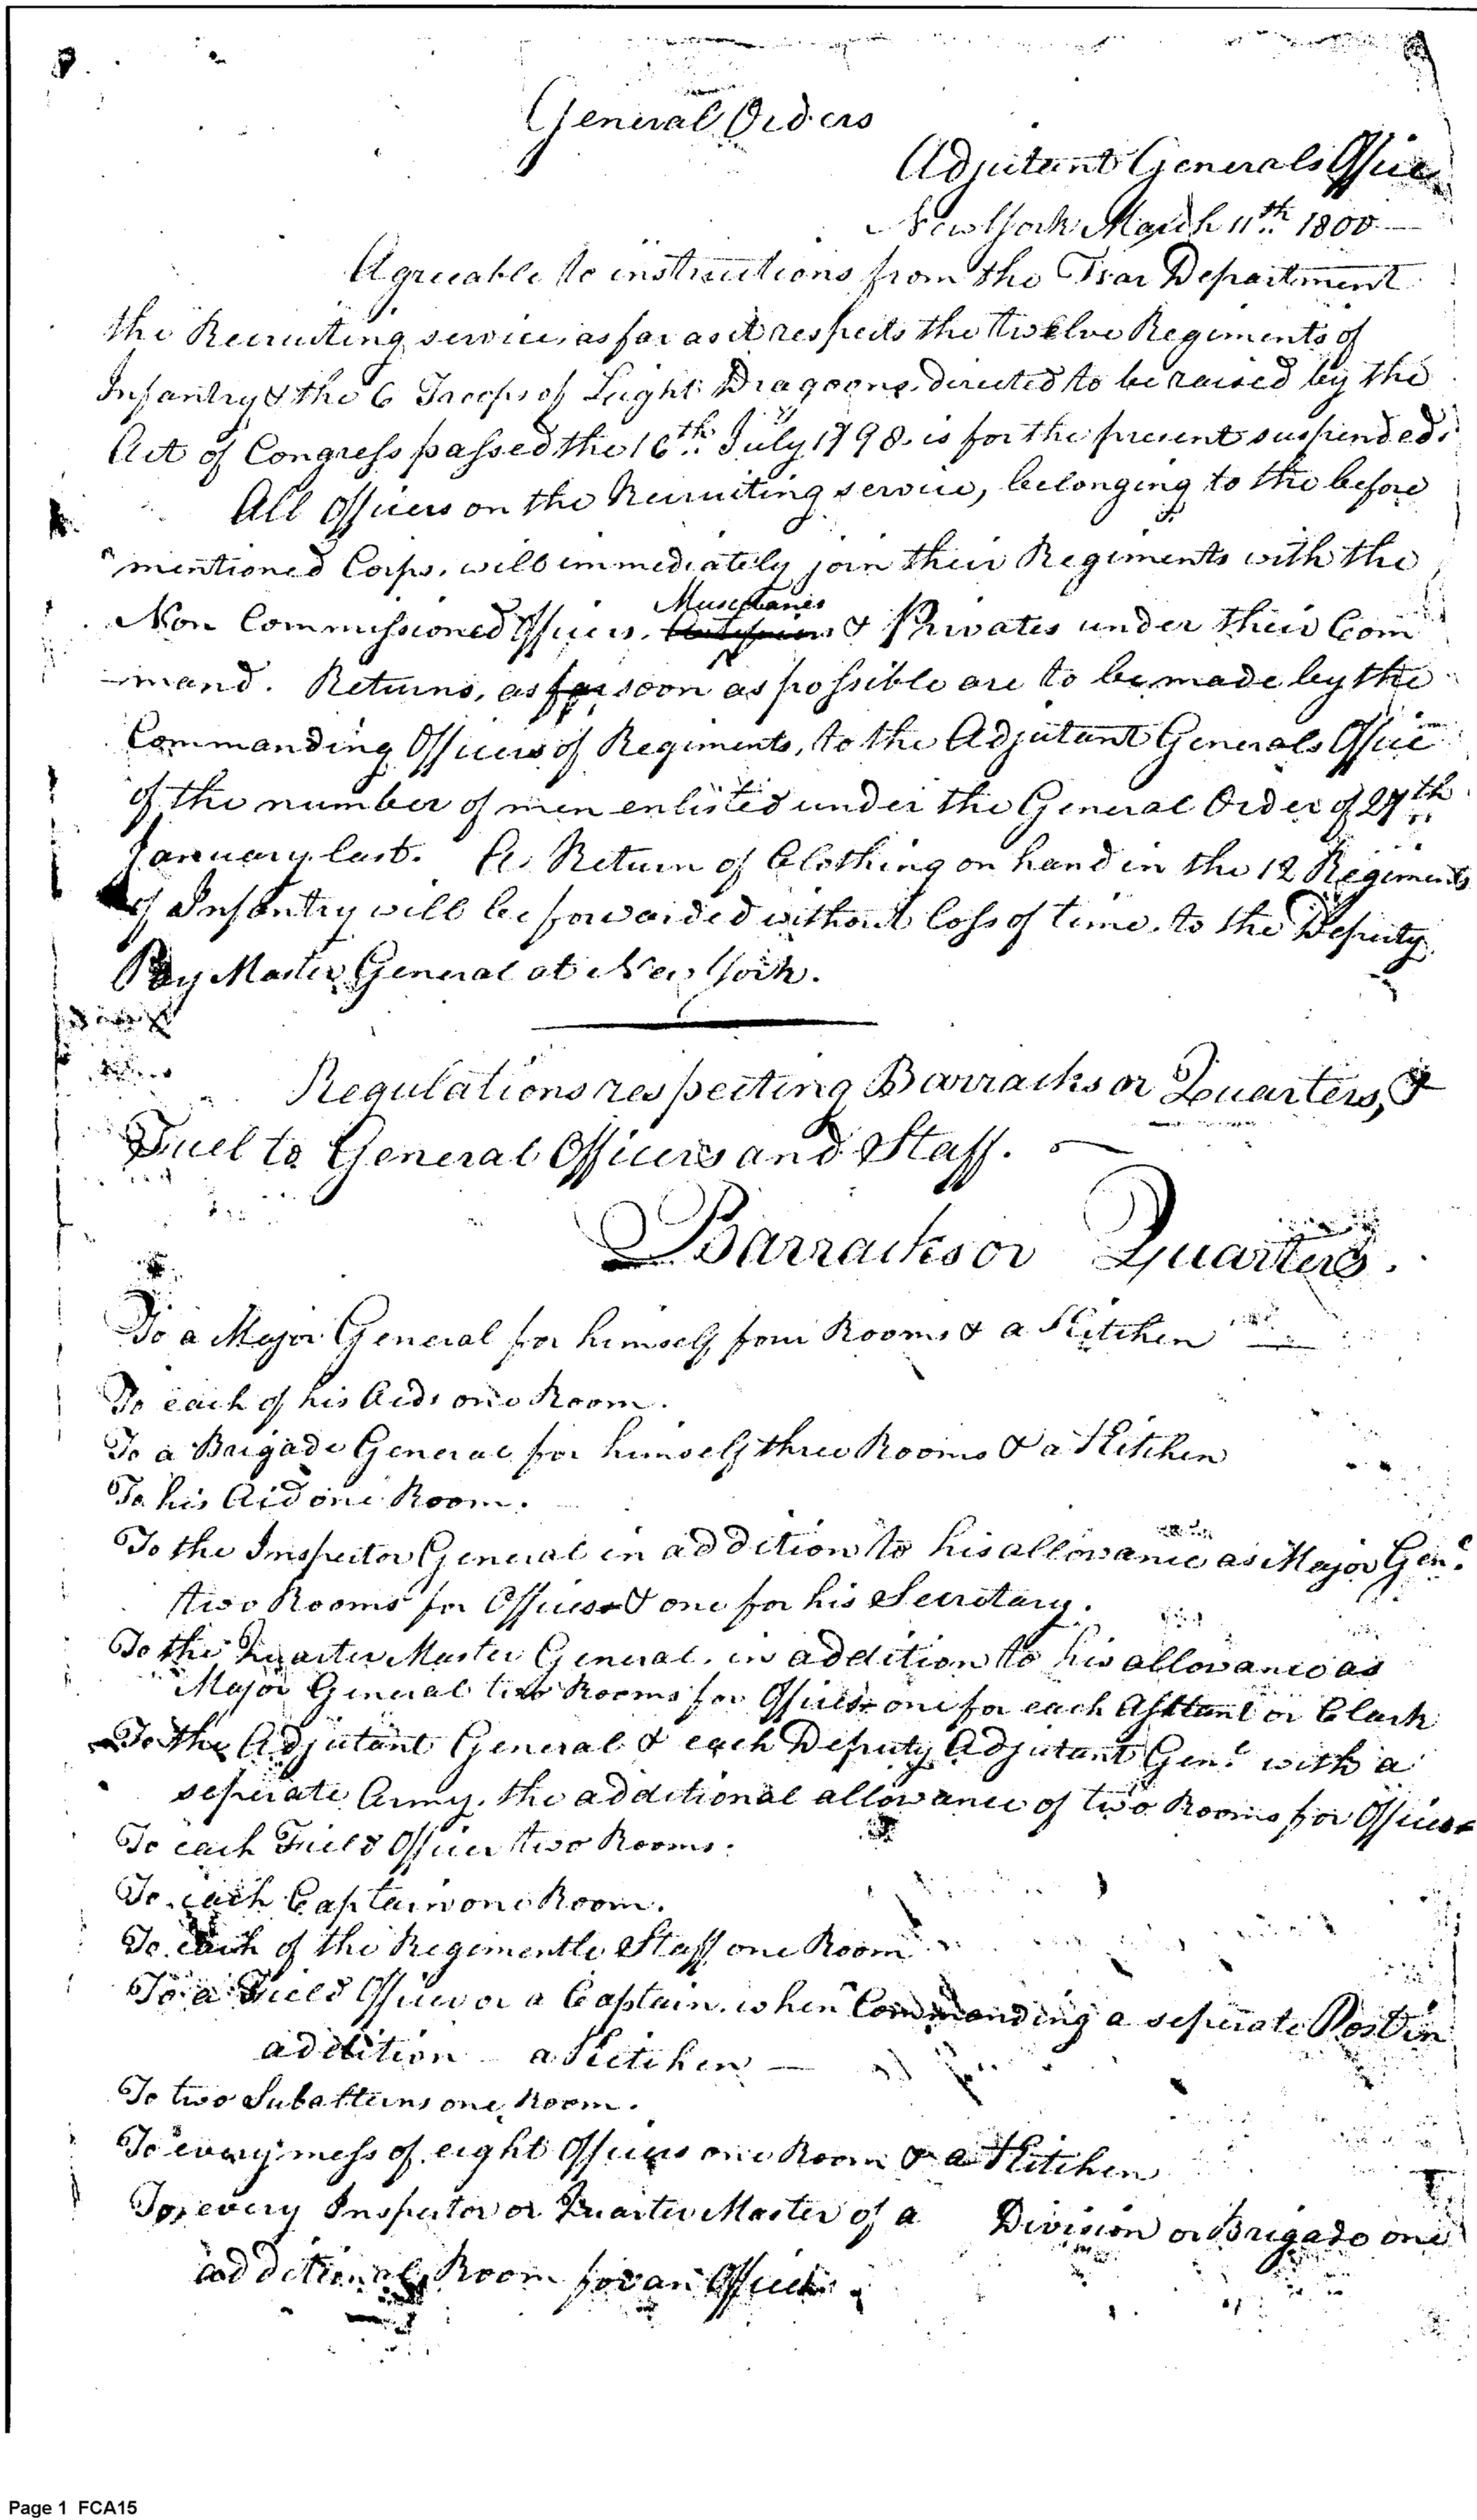 General Orders
Adjutant Generals Office
New York March 11th 1800
Agreeable to instructions from the War Department
the Recruiting service, as far as it respects the twelve Regiments of
Infantry & the 6 Troops of Light Dragoons, directed to be raised by the
Act of Congress passed the 16th July 1798. is for the present suspended.
All Officers on the Recruiting service, belonging to the before
mentioned Corps, will immediately join their Regiments with the
Musicianes
Non Commissioned Officers, & Privates under their Com
-mand. Returns, as far soon as possible are to be made by the
Commanding Officers of Regiments, to the Adjutant Generals Office
of the number of men enlisted under the General Order of 27th
January last. A Return of Clothing on hand in the 12 Regiments
of Infantry will be forwarded without loss of time, to the Deputy
Pay Master General at New York.
Regulations respecting Barracks or Quarters, &
Fuel to General Officers and Staff.
Barracks or Quarters.
To a Major General for himself four Rooms & a Kitchen
To each of his Aids one Room.
To a Brigade General for himself three Rooms & a Kitchen
To his Aid one Room.
To the Inspector General in addition to his allowance as Major Genl.
two Rooms for Offices & one for his Secretary.
To the Quarter Master General, in addition to his allowance as
Major General two Rooms for Offices one for each Asstant or Clark
To the Adjutant General & each Deputy Adjutant Genl. with a
seperate Army, the additional allowance of two Rooms for Offices
To each Field Officer two Rooms.
To each Captain one Room.
To each of the Regimentle Staff one Room
To a Field Officer or a Captain, when Commanding a seperate Post in
addition a Kitchen
To two Subalterns one Room.
To every mess of eight Officers one Room & a Kitchen
To every Inspector or Quarter Master of a Division or Brigade one
additional Room for an Office.
Page 1 FCA15